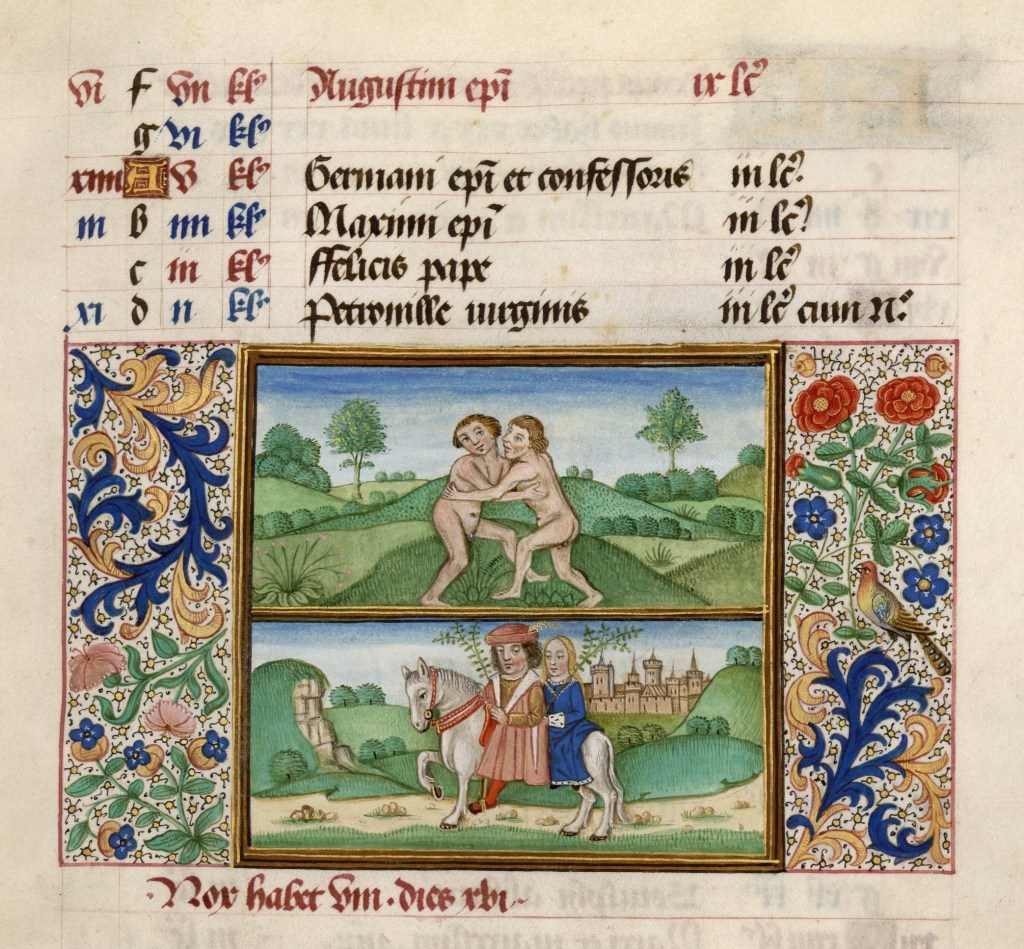 vi f vii kl' Augustini ep̄i ix lc̄
g vi kl'
xiiii A v kl' Germani ep̄i et confessoris iii lc̄.
iii b iiii kl' Maximi ep̄i iii lc̄
c iii kl' ffelicis pape iii lc̄
xi d ii kl' Petronille uirginis iii lc̄ cum N.
Nox habet viii. dies xvi.